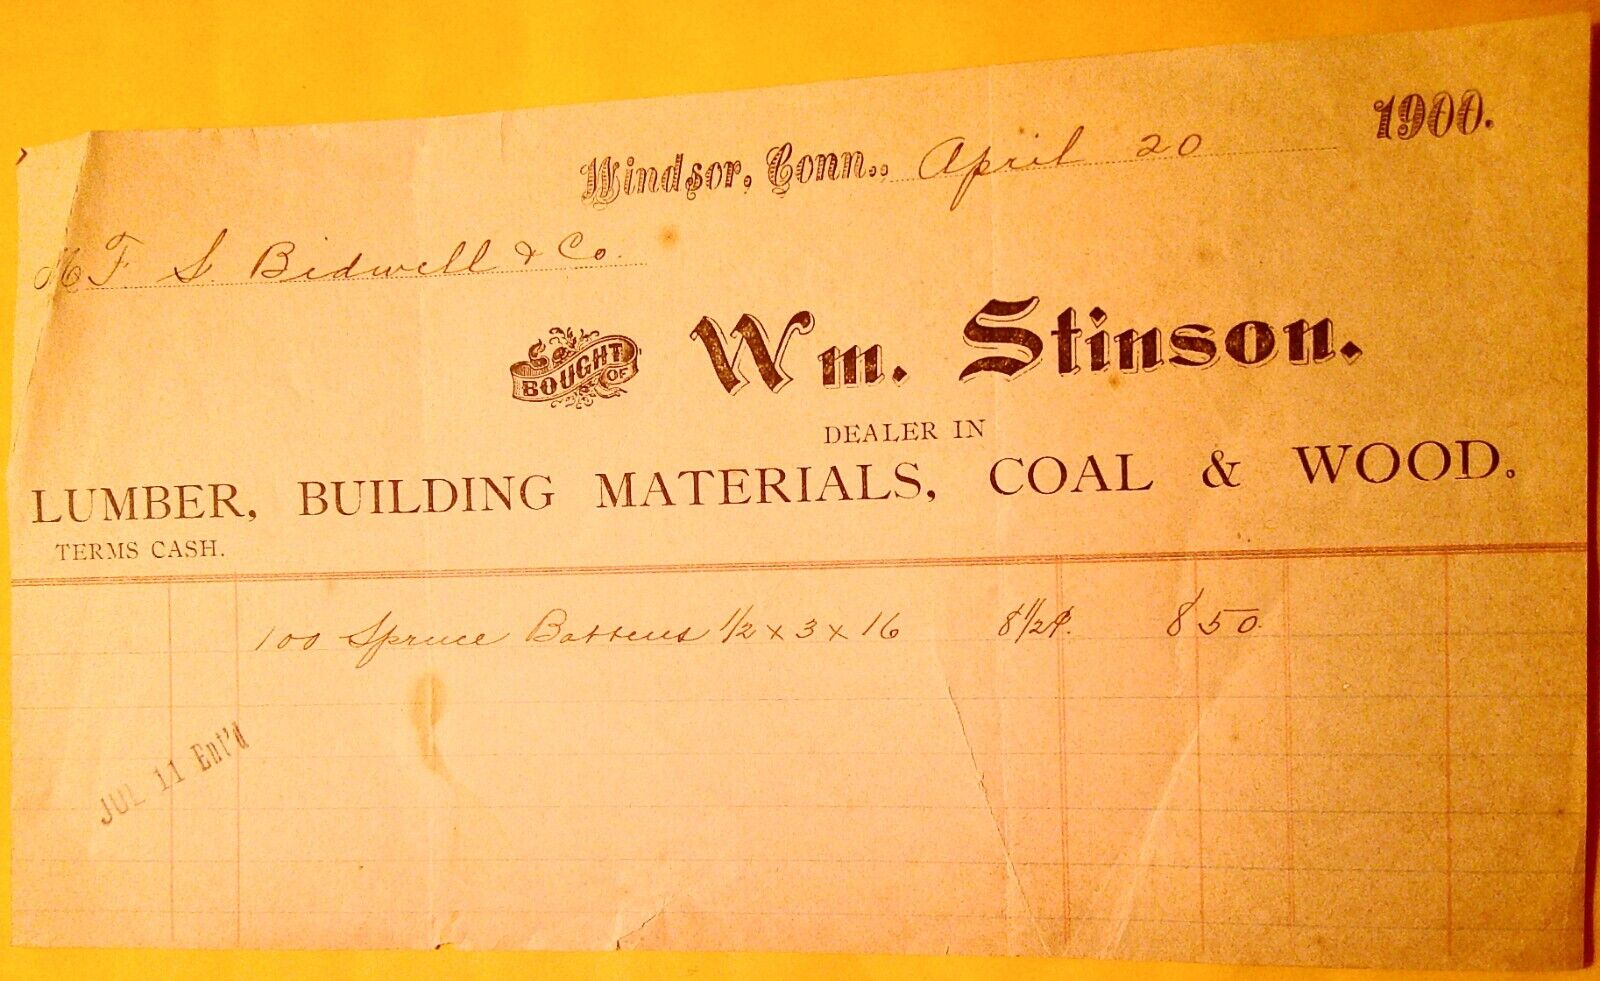 Windsor, Conn., April 20 1900.
M F. S. Bidwell & Co.
BOUGHT OF Wm. Stinson.
DEALER IN
LUMBER, BUILDING MATERIALS, COAL & WOOD.
TERMS CASH.
100 Spruce Battens 1/2 x 3 x 16 8 1/2¢. 8 50
JUL 11 Ent'd